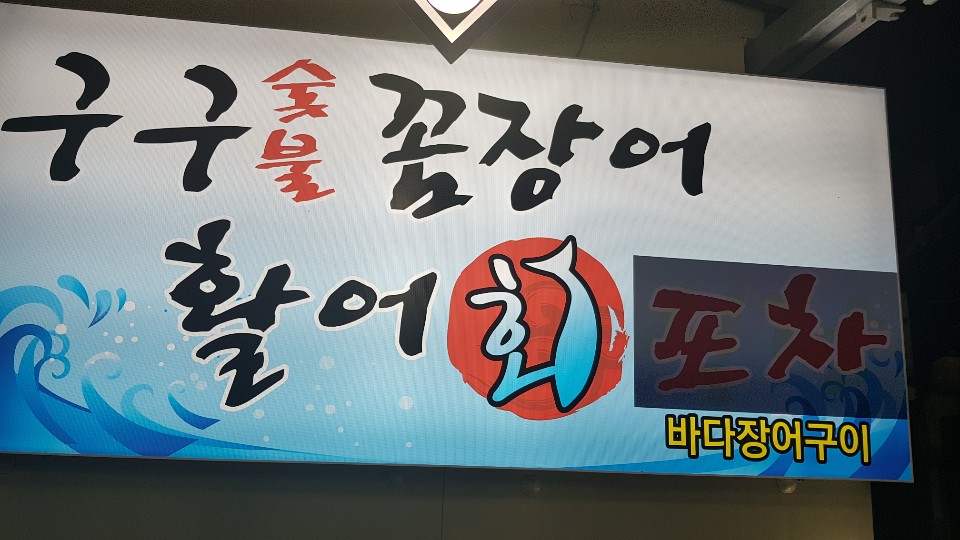 구구숯불 꼼장어
활어회포차
바다장어구이